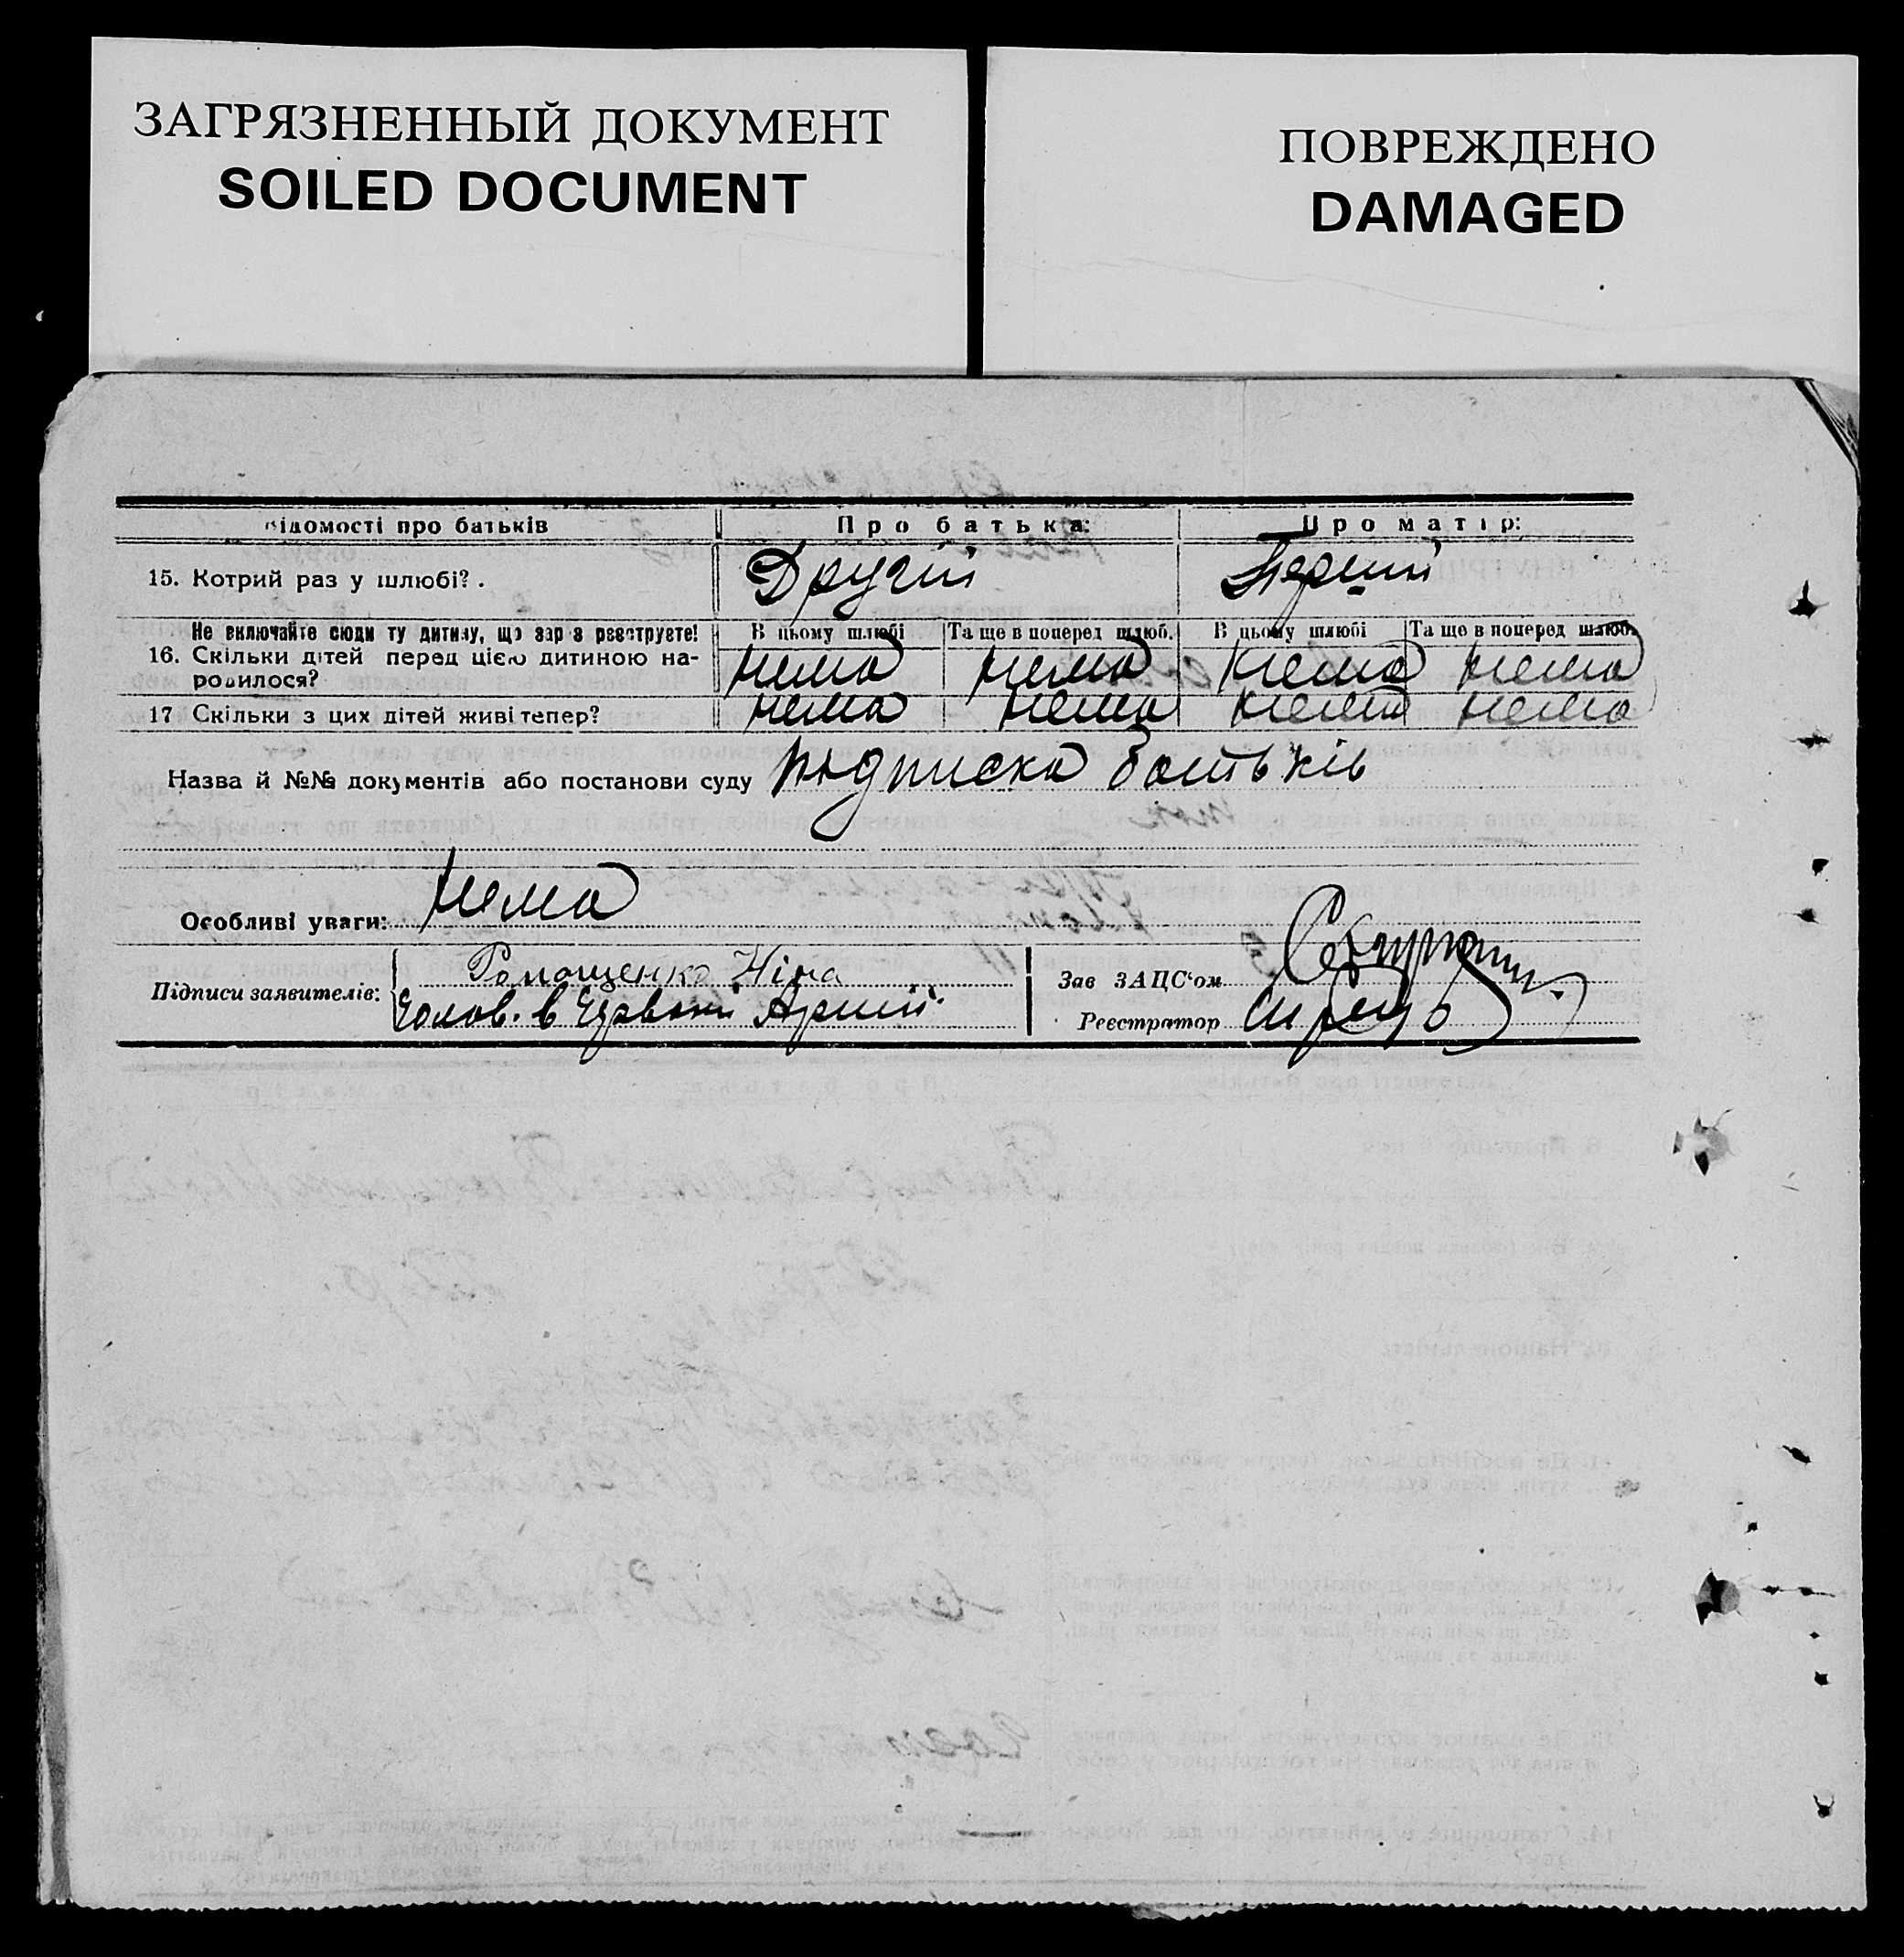 ЗАГРЯЗНЕННЫЙ ДОКУМЕНТ
SOILED DOCUMENT
ПОВРЕЖДЕНО
DAMAGED
відомості про батьків Про батька: Про матір:
15. Котрий раз у шлюбі? . Другій Перший
Не включайте сюди ту дитину, що зараз реєструєте! В цьому шлюбі Та ще в поперед шлюб. В цьому шлюбі Та ще в поперед шлюб.
16. Скільки дітей перед цією дитиною на- нема нема нема нема
родилося?
17 Скільки з цих дітей живі тепер? нема нема нема нема
Назва й №№ документів або постанови суду підписка батьків
Особливі уваги: нема
Підписи заявителів: Ромащенко Ніна
Чолов. в Червоній Армії
Зав ЗАЦС'ом
Реєстратор